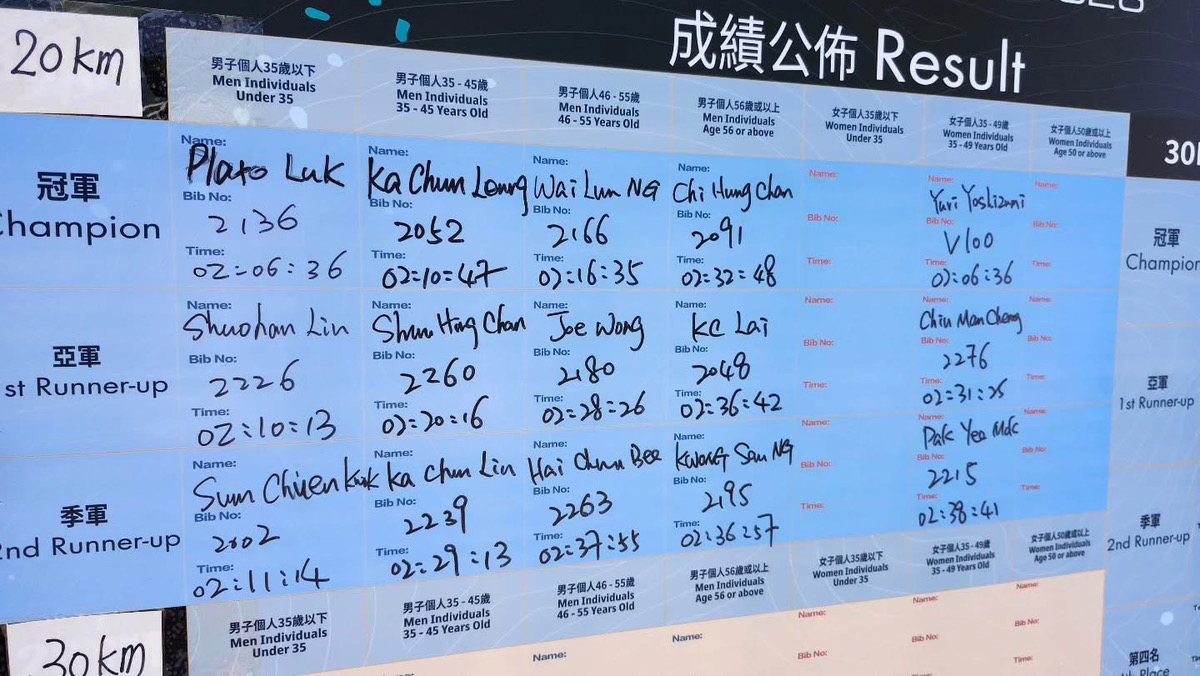 20 km
成績公佈 Result
男子個人35歲以下
Men Individuals
Under 35
男子個人35 - 45歲
Men Individuals
35 - 45 Years Old
男子個人46 - 55歲
Men Individuals
46 - 55 Years Old
男子個人56歲或以上
Men Individuals
Age 56 or above
女子個人35歲以下
Women Individuals
Under 35
女子個人35 - 49歲
Women Individuals
35 - 49 Years Old
女子個人50歲或以上
Women Individuals
Age 50 or above
冠軍
Champion
Name:
Plato Luk
Bib No:
2136
Time:
02:06:36
Name:
Ka Chun Leung
Bib No:
2052
Time:
02:10:47
Name:
Wai Lun NG
Bib No:
2166
Time:
02:16:35
Name:
Chi Hung Chan
Bib No:
2091
Time:
02:32:48
Name:
Bib No:
Time:
Name:
Yuri Yoshizumi
Bib No:
V100
Time:
02:06:36
Name:
Bib No:
Time:
亞軍
1st Runner-up
Name:
Shuohan Lin
Bib No:
2226
Time:
02:10:13
Name:
Shun Hing Chan
Bib No:
2260
Time:
02:20:16
Name:
Joe Wong
Bib No:
2180
Time:
02:28:26
Name:
KC Lai
Bib No:
2048
Time:
02:36:42
Name:
Bib No:
Time:
Name:
Chiu Man Cheng
Bib No:
2276
Time:
02:31:25
Name:
Bib No:
Time:
季軍
2nd Runner-up
Name:
Sum Chuen
Bib No:
2002
Time:
02:11:14
Name:
Ka Chun Lin
Bib No:
2239
Time:
02:29:13
Name:
Hai Chun Bee
Bib No:
2263
Time:
02:37:55
Name:
Kwong San NG
Bib No:
2195
Time:
02:36:57
Name:
Bib No:
Time:
Name:
Pak Yee Mak
Bib No:
2215
Time:
02:38:41
Name:
Bib No:
Time:
30 km
男子個人35歲以下
Men Individuals
Under 35
男子個人35 - 45歲
Men Individuals
35 - 45 Years Old
男子個人46 - 55歲
Men Individuals
46 - 55 Years Old
男子個人56歲或以上
Men Individuals
Age 56 or above
女子個人35歲以下
Women Individuals
Under 35
女子個人35 - 49歲
Women Individuals
35 - 49 Years Old
女子個人50歲或以上
Women Individuals
Age 50 or above
Name:
Name:
Name:
Bib No:
Name:
Bib No:
Name:
Bib No:
Time:
30
冠軍
Champion
亞軍
1st Runner-up
季軍
2nd Runner-up
第四名
4th Place